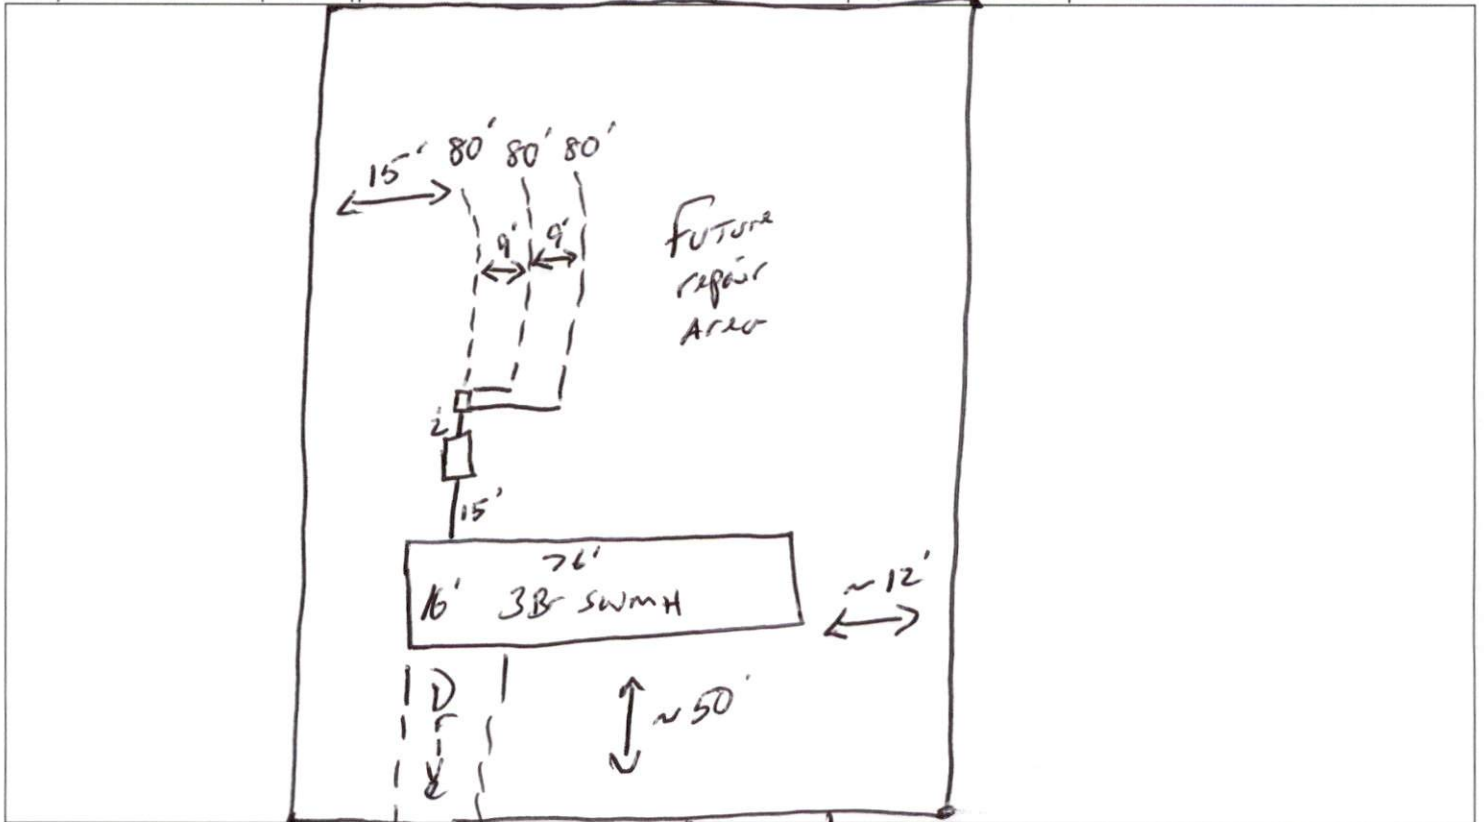 15' 80' 80' 80'
9' 9'
Future
repair
Area
2'
15'
76'
16' 3Br SWMH
~12'
Drive
~50'